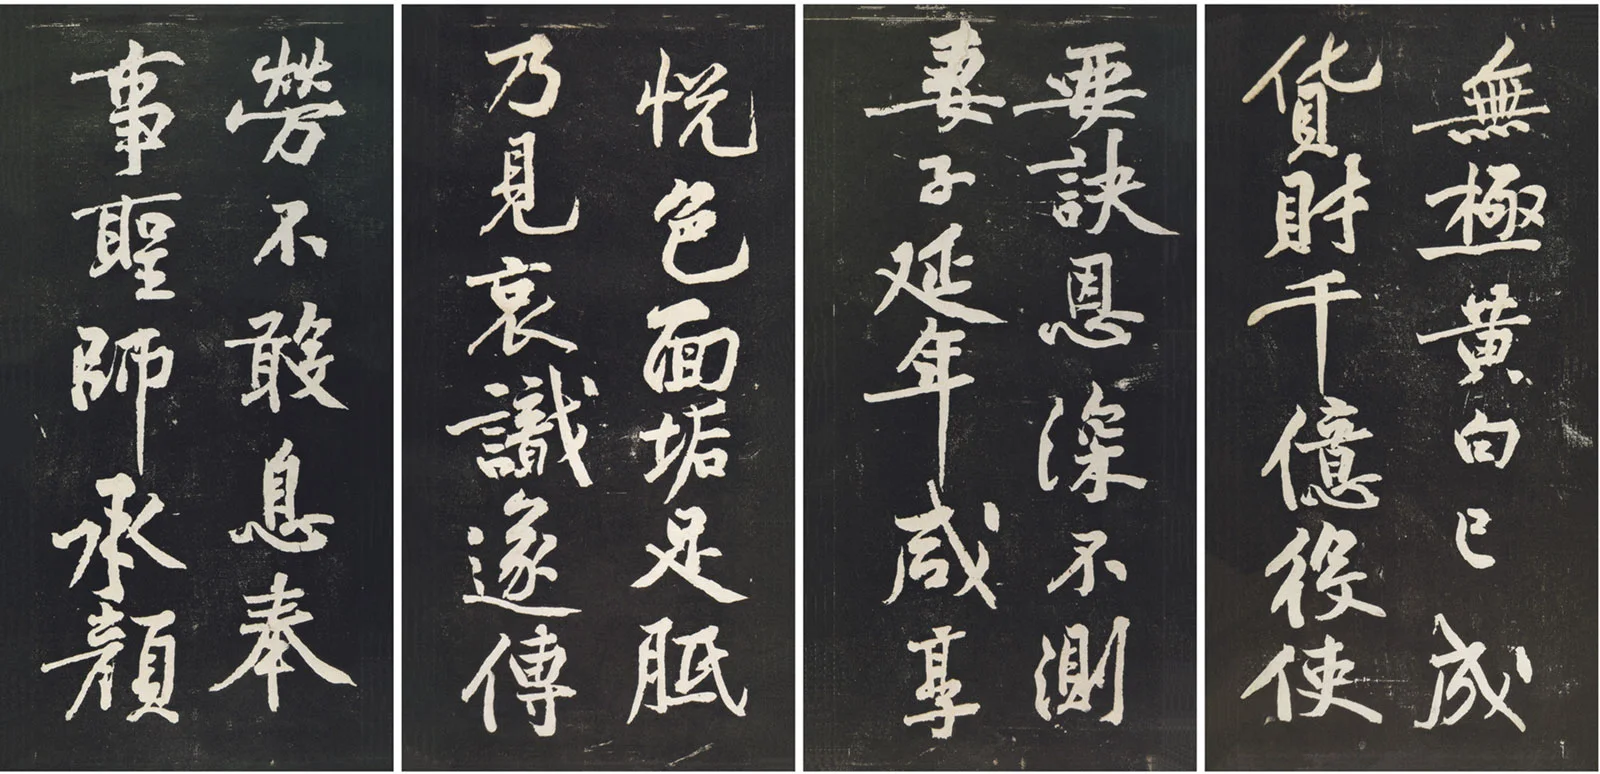 勞不敢息奉
事聖師承顏
悅色面垢足胝
乃見哀識遂傳
要訣恩深不測
妻子延年咸享
無極黃白已成
貨財千億役使